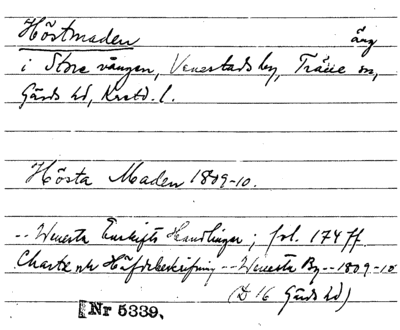 Höstmaden äng
i Stora vången, Venestads by, Träne sn,
Gärds hd, Krstd. l.
Hösta Maden 1809-10.
-- Wenesta Enskifts Handlingar; fol. 174 ff
Charta och Häfdebeskrifning -- Wenesta By -- 1809-10
(D 16 Gärds hd)
Nr 5339.